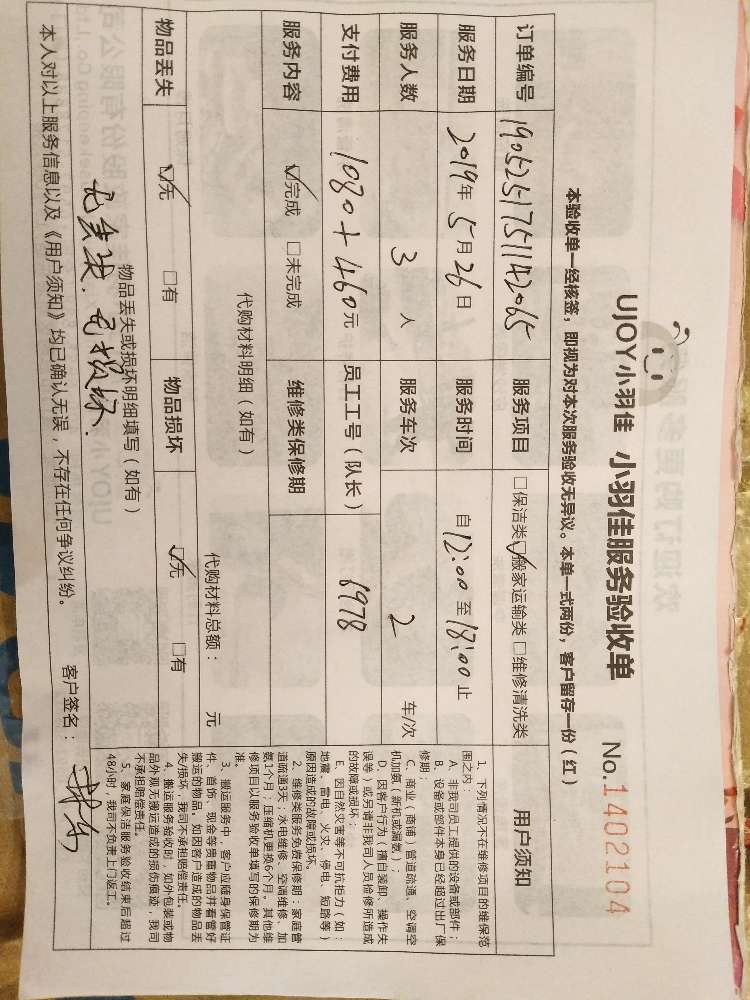 UJOY小羽佳 小羽佳服务验收单 No.1402104
本验收单一经核签，即视为对本次服务验收无异议。本单一式两份，客户留存一份（红）
订单编号 1905251751142065 服务项目 □保洁类☑搬家运输类 □维修清洗类
服务日期 2019年 5月26日 服务时间 自12:00至18:00止
服务人数 3 人 服务车次 2 车/次
支付费用 1080+460元 员工工号（队长） 6978
服务内容 ☑完成 □未完成 维修类保修期
代购材料明细（如有）
代购材料总额： 元
物品丢失 ☑无 □有 物品损坏 ☑无 □有
物品丢失或损坏明细填写（如有）
无丢失. 无损坏.
本人对以上服务信息以及《用户须知》均已确认无误，不存在任何争议纠纷。 客户签名：
用户须知
1、下列情况不在维修项目的维保范
围之内：
A、非我司员工提供的设备或部件；
B、设备或部件本身已经超过出厂保
修期；
C、商业（商铺）管道疏通、空调空
机加氨（新机或漏氨）；
D、因客户行为（擅自装卸、操作失
误等）或另请非我司人员检修所造成
的故障或损坏；
E、因自然灾害等不可抗拒力（如：
地震、雷电、火灾、停电、短路等）
原因造成的故障或损坏。
2、维修类服务免费保修期：家庭管
道疏通3天；水电维修、空调维修、加
氨1个月；压缩机更换6个月。其他维
修项目以服务验收单填写的保修期为
准。
3、搬运服务中，客户应随身保管证
件、首饰、现金等贵重物品并看管好
搬运的物品，如因客户造成的物品丢
失/损坏，我司不承担赔偿责任。
4、搬运服务验收时，如外包装或物
品外观无搬运造成的损伤痕迹，我司
不承担赔偿责任。
5、家庭保洁服务验收结束后超过
48小时，我司不负责上门返工。